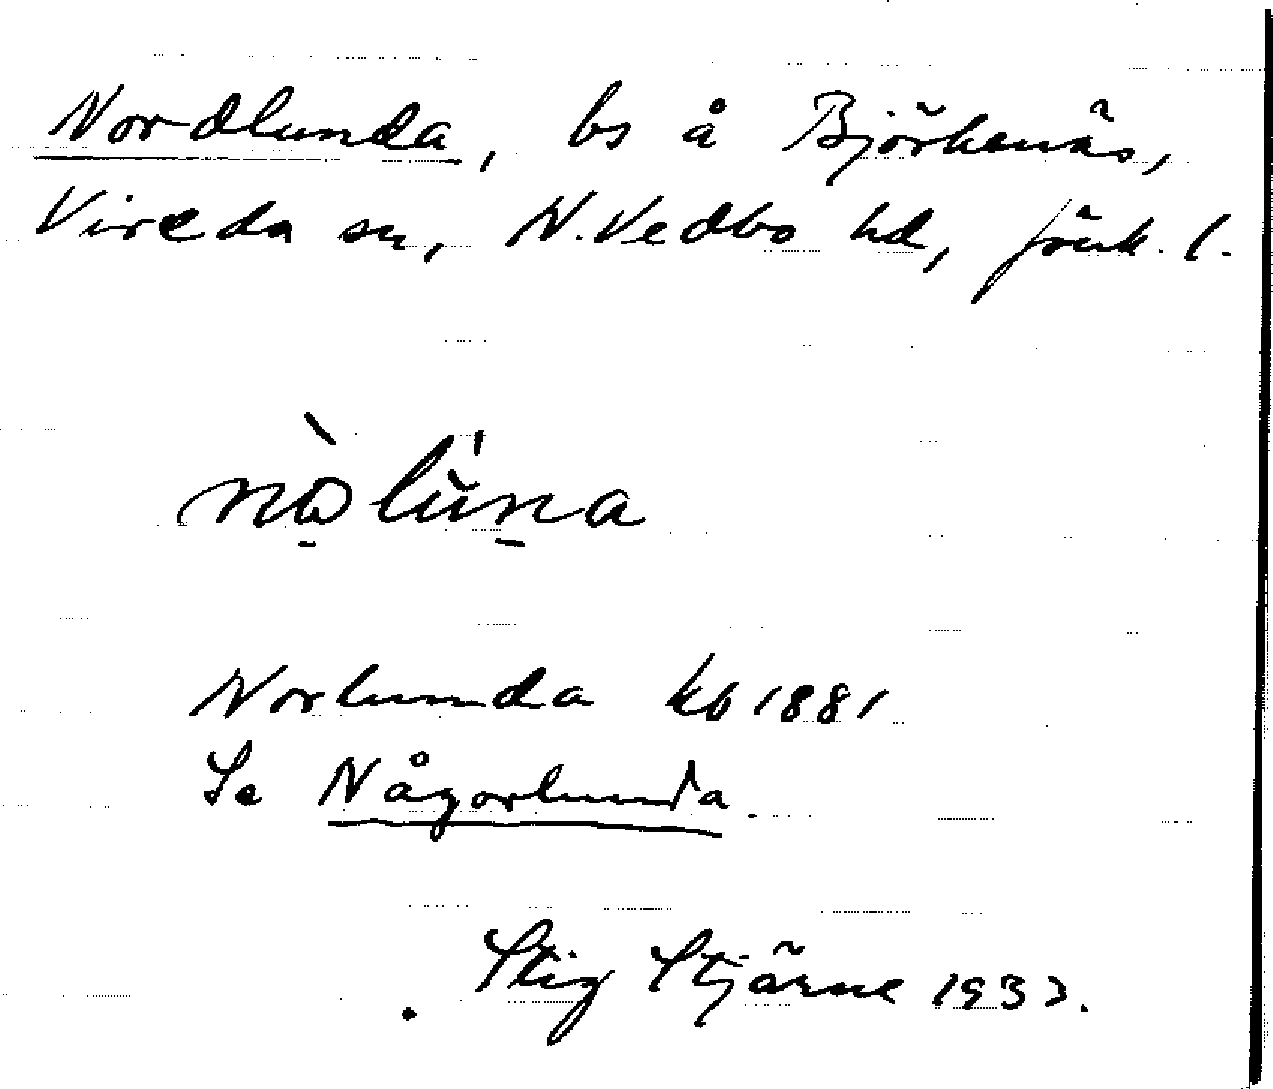 Nordlunda, bs å Björkenäs,
Vireda sn, N. Vedbo hd, Jönk. l.
Norlunda kb 1881
Se Någorlunda.
Stig Stjärne